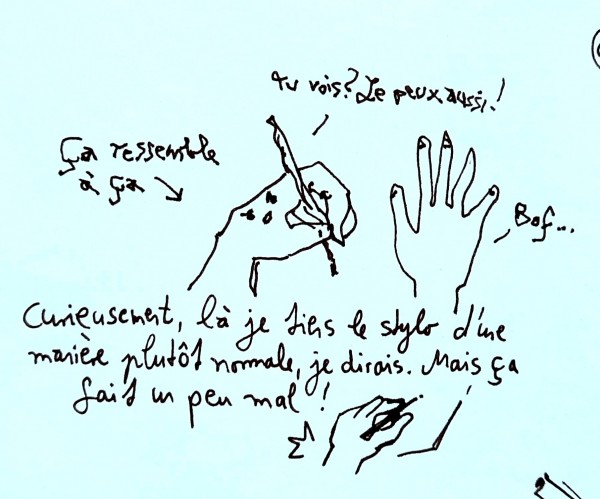 tu vois? Je peux aussi!
Ça ressemble
à ça
Bof...
Curieusement, là je tiens le stylo d'une
manière plutôt normale, je dirais. Mais ça
fait un peu mal !